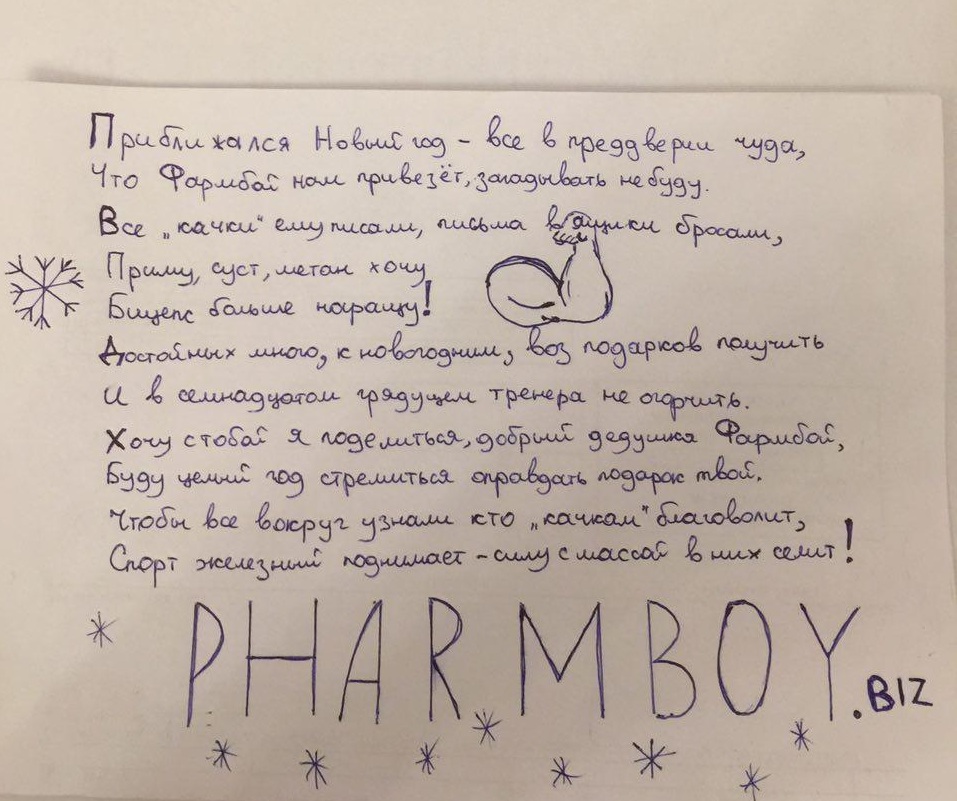 Приближался Новый год - все в преддверии чуда,
Что Фармбой нам привезёт, загадывать не буду.
Все „качки" ему писали, письма в ящики бросали,
Приму, суст, метан хочу
Бицепс больше наращу!
Достойных много, к новогодним, воз подарков получить
И в семнадцатом грядущем тренера не огорчить.
Хочу с тобой я поделиться, добрый дедушка Фармбой,
Буду целый год стремиться оправдать подарок твой.
Чтобы все вокруг узнали кто „качкам" благоволит,
Спорт железный поднимает - силу с массой в них селит!
PHARMBOY.BIZ